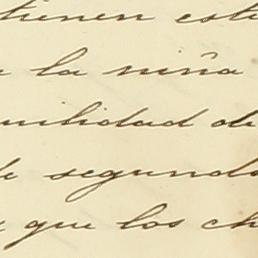 tienen est
la niña
milidad de
segund
que los ch